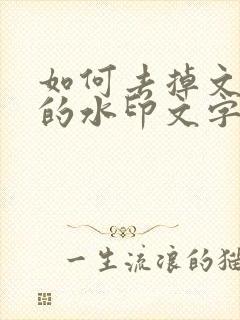 如何去掉文
的水印文字
一生流浪的猫